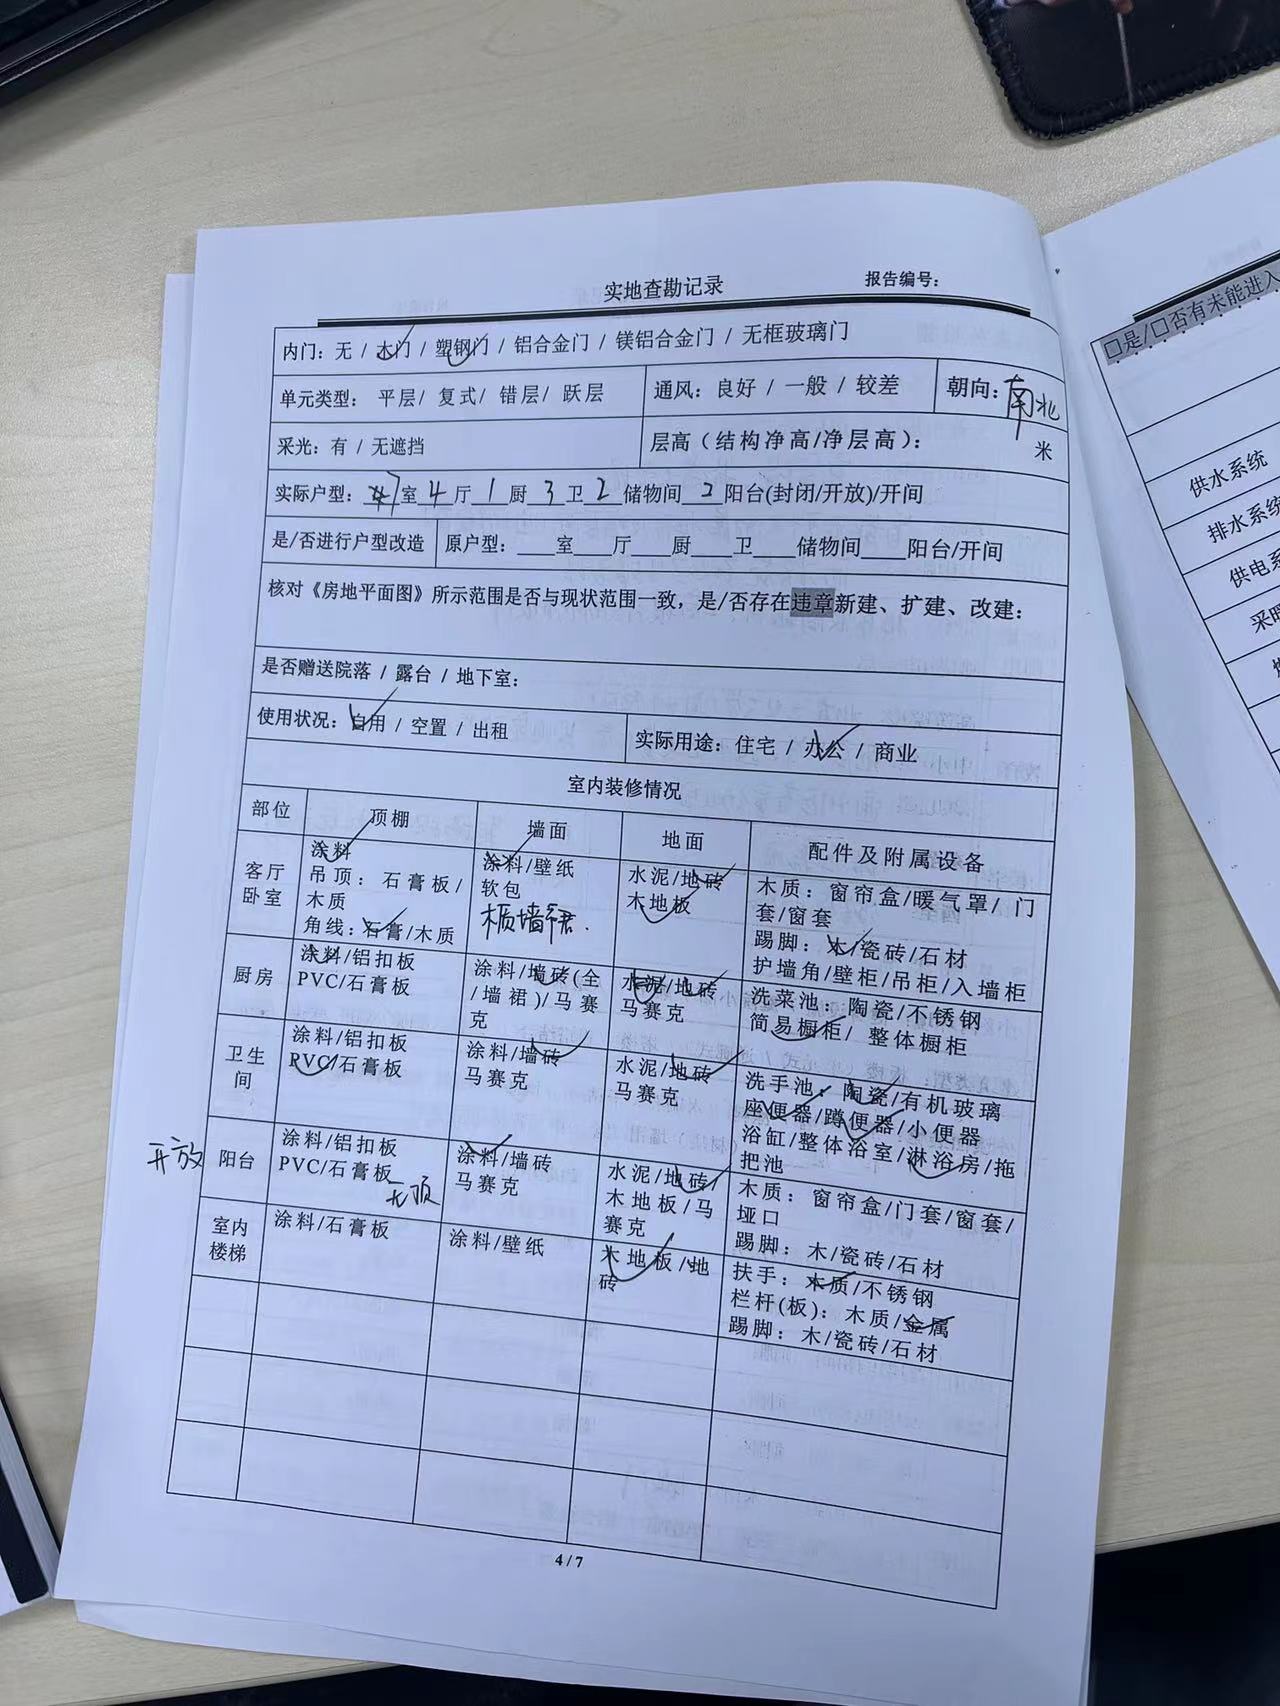 实地查勘记录 报告编号：
内门：无 / 木门 / 塑钢门 / 铝合金门 / 镁铝合金门 / 无框玻璃门
单元类型： 平层/ 复式/ 错层/ 跃层 通风：良好 / 一般 / 较差 朝向：南北
采光：有 / 无遮挡 层高（结构净高/净层高）： 米
实际户型：7室4厅1厨3卫2储物间2阳台(封闭/开放)/开间
是/否进行户型改造 原户型：___室___厅___厨___卫___储物间___阳台/开间
核对《房地平面图》所示范围是否与现状范围一致，是/否存在违章新建、扩建、改建：
是否赠送院落 / 露台 / 地下室：
使用状况：自用 / 空置 / 出租 实际用途：住宅 / 办公 / 商业
室内装修情况
部位 顶棚 墙面 地面 配件及附属设备
客厅
卧室
涂料
吊顶：石膏板/
木质
角线：石膏/木质
涂料/壁纸
软包
木质墙裙.
水泥/地砖
木地板
木质：窗帘盒/暖气罩/ 门
套/窗套
踢脚：木/瓷砖/石材
护墙角/壁柜/吊柜/入墙柜
厨房
涂料/铝扣板
PVC/石膏板
涂料/墙砖(全
/墙裙)/马赛
克
水泥/地砖
马赛克
洗菜池：陶瓷/不锈钢
简易橱柜/ 整体橱柜
卫生
间
涂料/铝扣板
PVC/石膏板
涂料/墙砖
马赛克
水泥/地砖
马赛克
洗手池：陶瓷/有机玻璃
座便器/蹲便器/小便器
浴缸/整体浴室/淋浴房/拖
把池
开放 阳台
涂料/铝扣板
PVC/石膏板
无顶
涂料/墙砖
马赛克
水泥/地砖/
木地板/马
赛克
木质：窗帘盒/门套/窗套/
垭口
踢脚：木/瓷砖/石材
室内
楼梯
涂料/石膏板
涂料/壁纸
木地板/地
砖
扶手：木质/不锈钢
栏杆(板)：木质/金属
踢脚：木/瓷砖/石材
4 / 7
□是/□否有未能进入
供水系统
排水系统
供电系
采暖